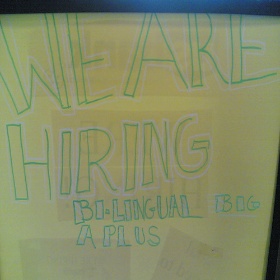 WE ARE
HIRING
BI-LINGUAL BIG
A PLUS